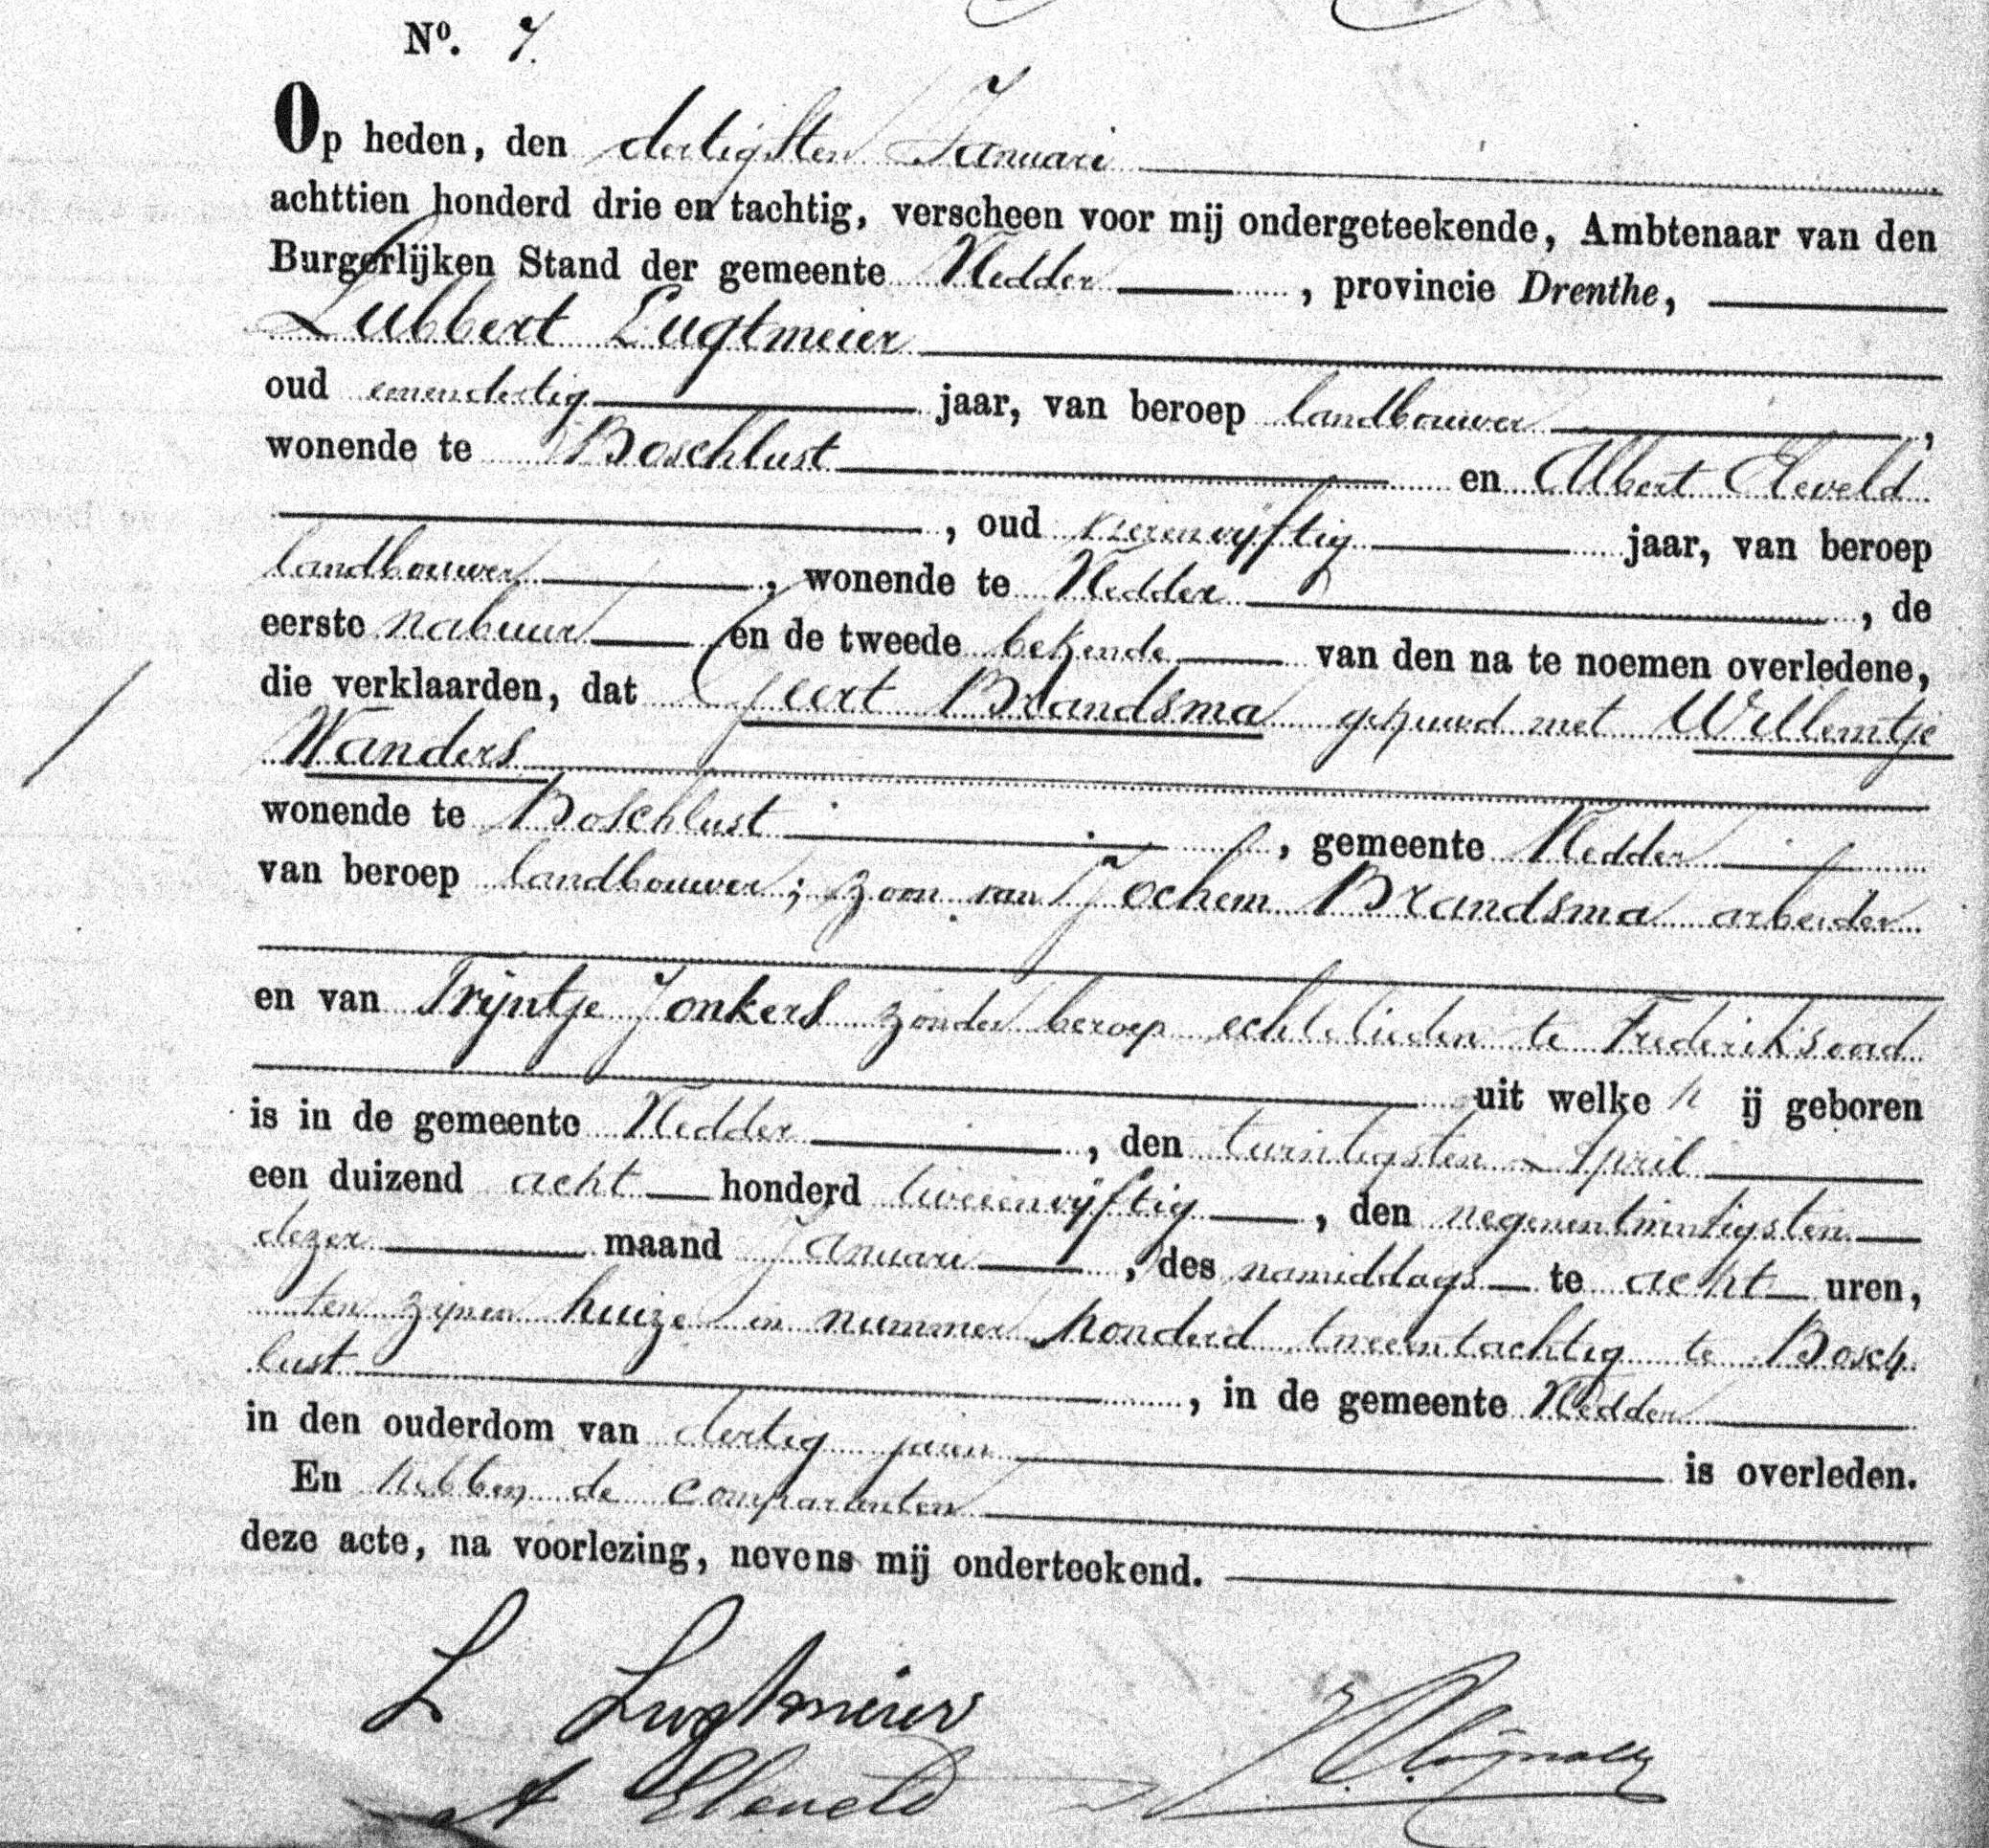 Nº. 7.
Op heden, den dertigsten Januari
achttien honderd drie en tachtig, verscheen voor mij ondergeteekende, Ambtenaar van den
Burgerlijken Stand der gemeente Vledder , provincie Drenthe,
Lubbert Lugtmeier
oud eenendertig jaar, van beroep landbouwer ,
wonende te Boschlust en Albert Eleveld
, oud vierenvijftig jaar, van beroep
landbouwer , wonende te Vledder , de
eerste nabuur en de tweede bekende van den na te noemen overledene,
die verklaarden, dat Geert Brandsma gehuwd met Willemtje
Wanders
wonende te Boschlust , gemeente Vledder
van beroep landbouwer; zoon van Jochem Brandsma arbeider
en van Trijntje Jonkers zonder beroep echtelieden te Frederiksoord
uit welke h ij geboren
is in de gemeente Vledder , den twintigsten April
een duizend acht honderd tweeenvijftig , den negenentwintigsten
dezer maand Januari , des namiddags te acht uren,
ten zijnen huize in nummer honderd tweeentachtig te Bosch
lust , in de gemeente Vledder
in den ouderdom van dertig jaren is overleden.
En hebben de comparanten
deze acte, na voorlezing, nevens mij onderteekend.
L Lugtmeier
A Eleveld